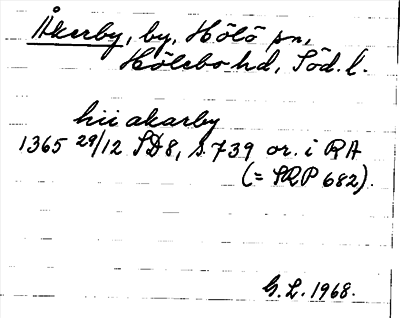 Åkerby, by, Hölö sn,
Hölebo hd, Söd. l.
hii akarby
1365 29/12 SD 8, s. 739 or. i RA
(= SRP 682).
G. L. 1968.